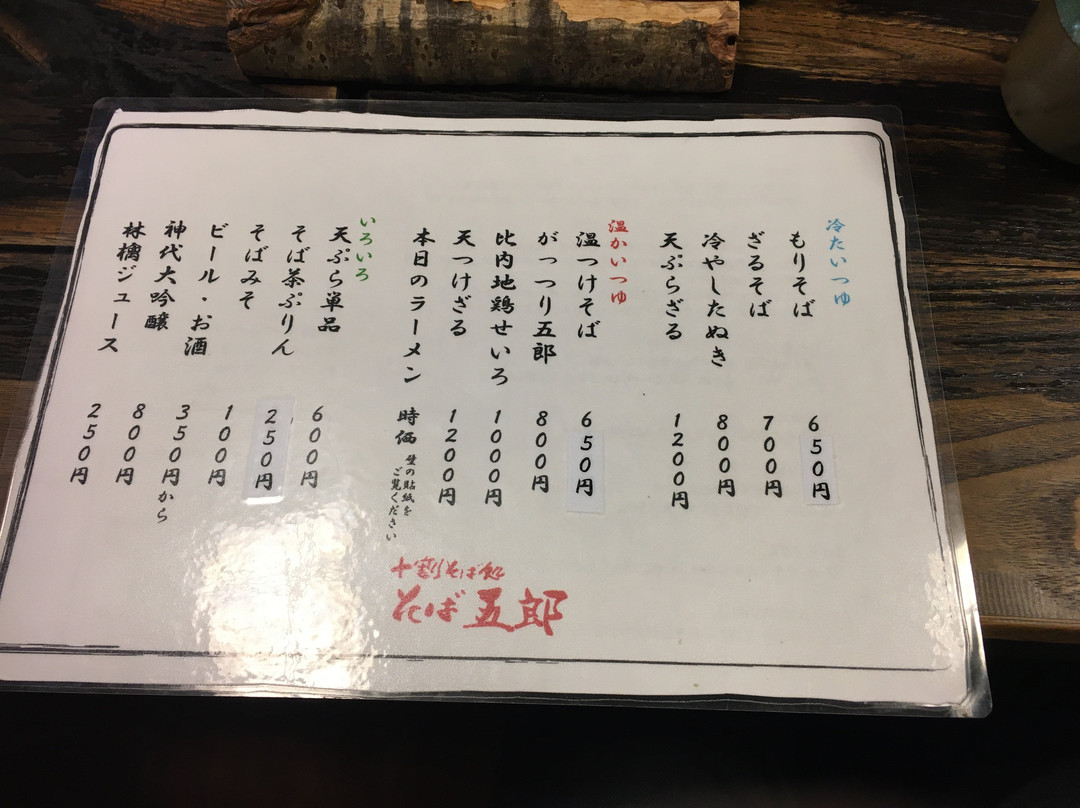 冷たいつゆ
もりそば 650円
ざるそば 700円
冷やしたぬき 800円
天ぷらざる 1200円
温かいつゆ
温つけそば 650円
がっつり五郎 800円
比内地鶏せいろ 1000円
天つけざる 1200円
本日のラーメン 時価 壁の貼紙をご覧ください
いろいろ
天ぷら単品 600円
そば茶ぷりん 250円
そばみそ 100円
ビール・お酒 350円から
神代大吟醸 800円
林檎ジュース 250円
十割そば処
そば五郎